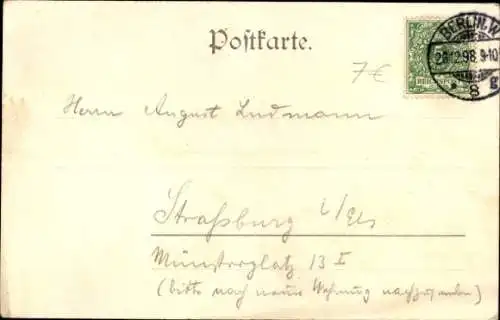 Postkarte.
BERLIN.W
28.12.98.9-10
* 8 g
7€
Herrn August Lindmann
Straßburg i/Els
Münsterplatz 13 I
(bitte nach neuer Wohnung nachzusenden)